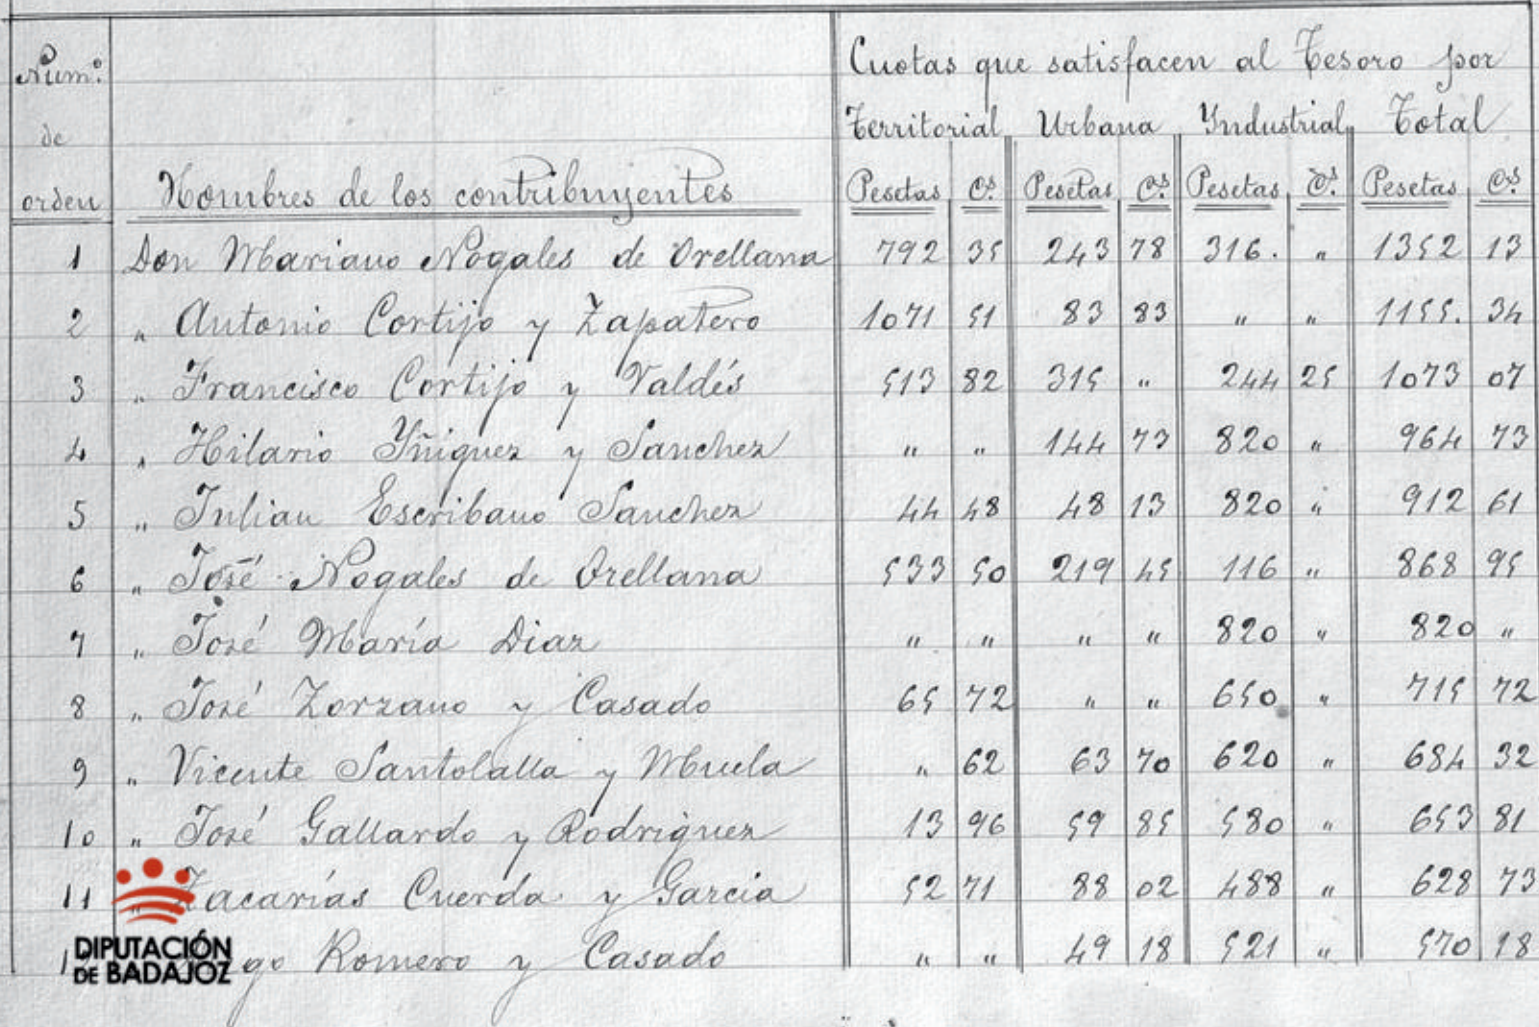 Cuotas que satisfacen al Tesoro por
Numº de orden Nombres de los contribuyentes Territorial Urbana Industrial Total
Pesetas Cs. Pesetas Cs. Pesetas Cs. Pesetas Cs.
1 Don Mariano Nogales de Orellana 792 35 243 78 316. " 1352 13
2 " Antonio Cortijo y Zapatero 1071 51 83 83 " " 1155. 34
3 " Francisco Cortijo y Valdés 513 82 315 " 244 25 1073 07
4 " Hilario Yñiguez y Sanchez " " 144 73 820 " 964 73
5 " Julian Escribano Sanchez 44 48 48 13 820 " 912 61
6 " José Nogales de Orellana 533 50 219 45 116 " 868 95
7 " José María Diaz " " " " 820 " 820 "
8 " José Zorzano y Casado 65 72 " " 650 " 715 72
9 " Vicente Santolalla y Muela " 62 63 70 620 " 684 32
10 " José Gallardo y Rodriguez 13 96 59 85 580 " 653 81
11 " Zacarías Cuerda y Garcia 52 71 88 02 488 " 628 73
go Romero y Casado " " 49 18 521 " 570 18
DIPUTACIÓN
DE BADAJOZ